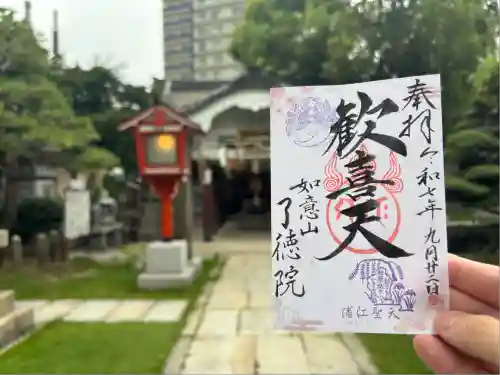 奉拝 令和七年 九月廿二日
歓喜天
如意山
了徳院
浦江聖天